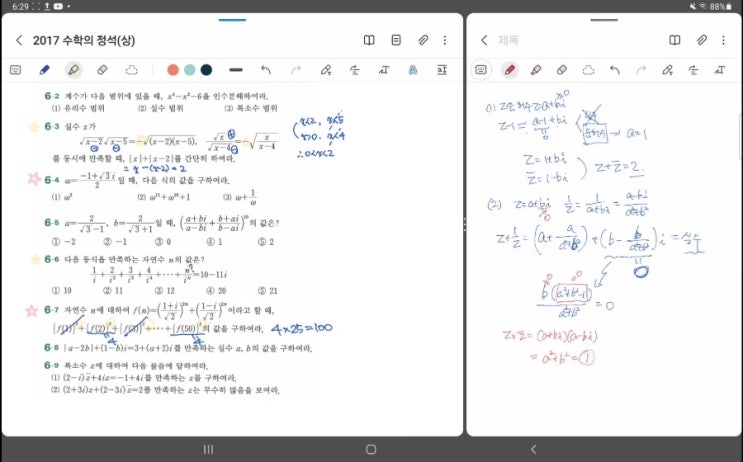 6:29
88%
2017 수학의 정석(상)
제목
6-2 계수가 다음 범위에 있을 때, x⁴-x²-6을 인수분해하여라.
(1) 유리수 범위 (2) 실수 범위 (3) 복소수 범위
6-3 실수 x가
√x-2 √x-5 = -√(x-2)(x-5), √x/√x-4 = -√(x/(x-4))
를 동시에 만족할 때, |x|+|x-2|를 간단히 하여라.
= x-(x-2)=2
x<2, x<5
x>0, x<4
∴0<x<2
6-4 ω=(-1+√3 i)/2 일 때, 다음 식의 값을 구하여라.
(1) ω³ (3) ω+1/ω
6-5 a=2/(√3-1), b=2/(√3+1)일 때, ((a+bi)/(a-bi)+(b+ai)/(b-ai))¹⁰의 값은?
① -2 ② -1 ③ 0 ④ 1 ⑤ 2
6-6 다음 등식을 만족하는 자연수 n의 값은?
1/i+2/i²+3/i³+4/i⁴+⋯+n/iⁿ=10-11i
① 10 ② 11 ③ 12 ④ 20 ⑤ 21
6-7 자연수 n에 대하여 f(n)=((1+i)/√2)²ⁿ+((1-i)/√2)²ⁿ이라고 할 때,
{f(1)}²+{f(2)}²+{f(3)}²+⋯+{f(50)}²의 값을 구하여라. 4×25=100
4 4
6-8 |a-2b|+(1-b)i=3+(a+2)i를 만족하는 실수 a, b의 값을 구하여라.
6-9 복소수 z에 대하여 다음 물음에 답하여라.
(1) (2-i)z̄+4iz=-1+4i를 만족하는 z를 구하여라.
(2) (2+3i)z+(2-3i)z̄=2를 만족하는 z는 무수히 많음을 보여라.
z=a+bi
z-1=a-1+bi
→ a=1
z=1+bi
z̄=1-bi
z+z̄=2
(2) z=a+bi 1/z=1/(a+bi)=(a-bi)/(a²+b²)
z+1/z=(a+a/(a²+b²))+(b-b/(a²+b²))i=실수
0
b(a²+b²-1)/(a²+b²)=0
z×z̄=(a+bi)(a-bi)
=a²+b²=①